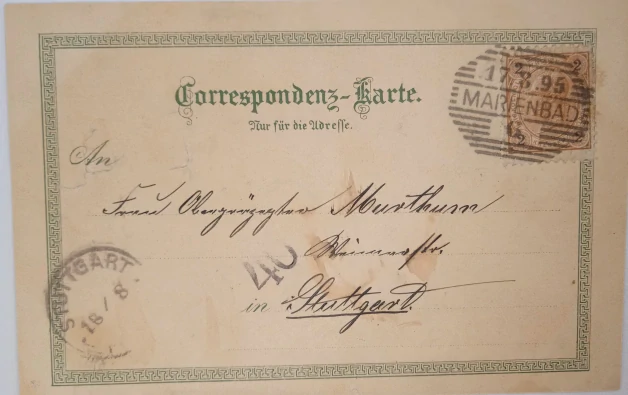 Correspondenz-Karte.
Nur für die Adresse.
2 2
17.8.95
MARIENBAD
2 2
An
Frau Murthum
40
in Stuttgart.
STUTTGART
18/8